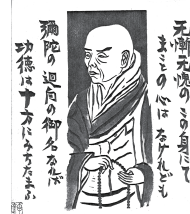 无慚无愧のこの身にて
まことの心はなけれども
彌陀の廻向の御名なれば
功徳は十方にみちたまふ